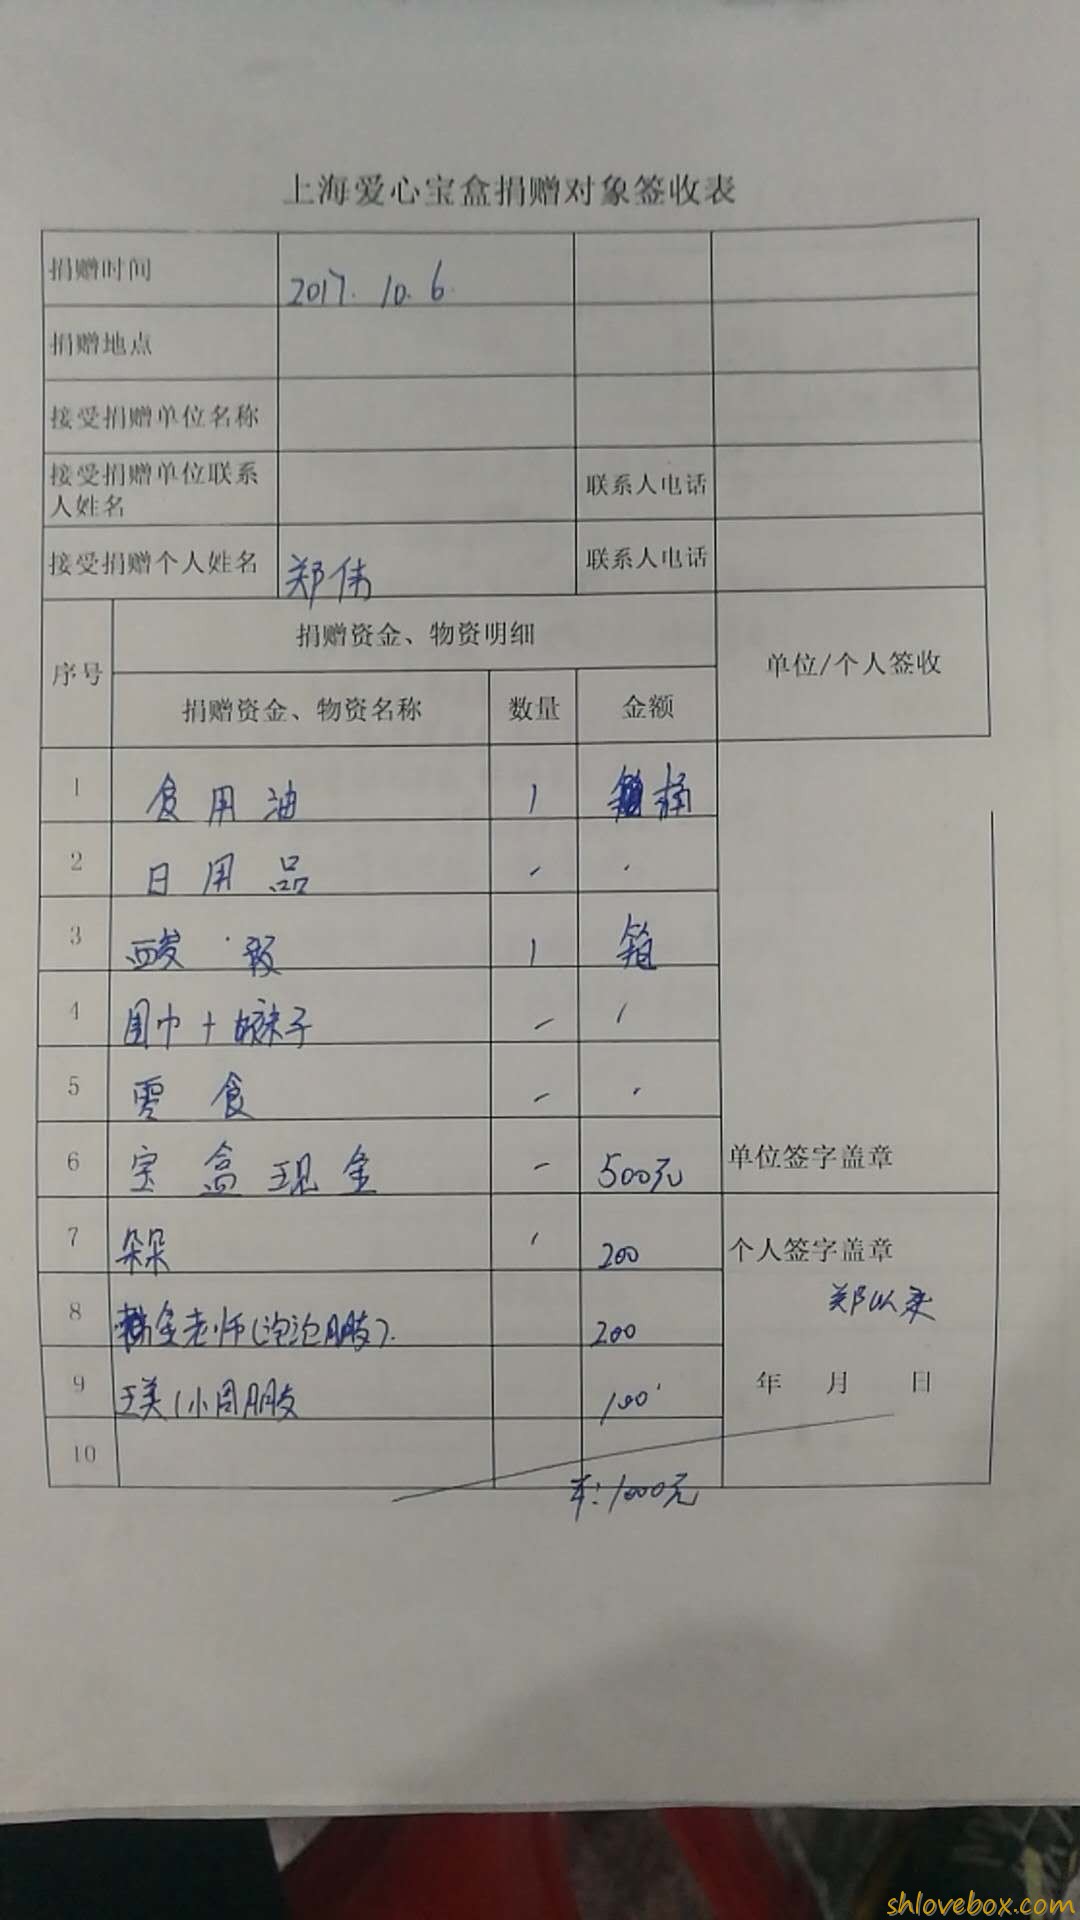 上海爱心宝盒捐赠对象签收表
捐赠时间 2017. 10. 6.
捐赠地点
接受捐赠单位名称
接受捐赠单位联系人姓名 联系人电话
接受捐赠个人姓名 郑伟 联系人电话
序号 捐赠资金、物资明细 单位/个人签收
捐赠资金、物资名称 数量 金额
1 食用油 1 桶
2 日用品
3 酸 1 箱
4 围巾+袜子
5 零食
6 宝盒现金 500元
单位签字盖章
7 朵朵 200
个人签字盖章
郑以柔
8 金老师(泡泡朋友). 200
9 王美(小周朋友 100
年 月 日
10
1000元
shlovebox.com